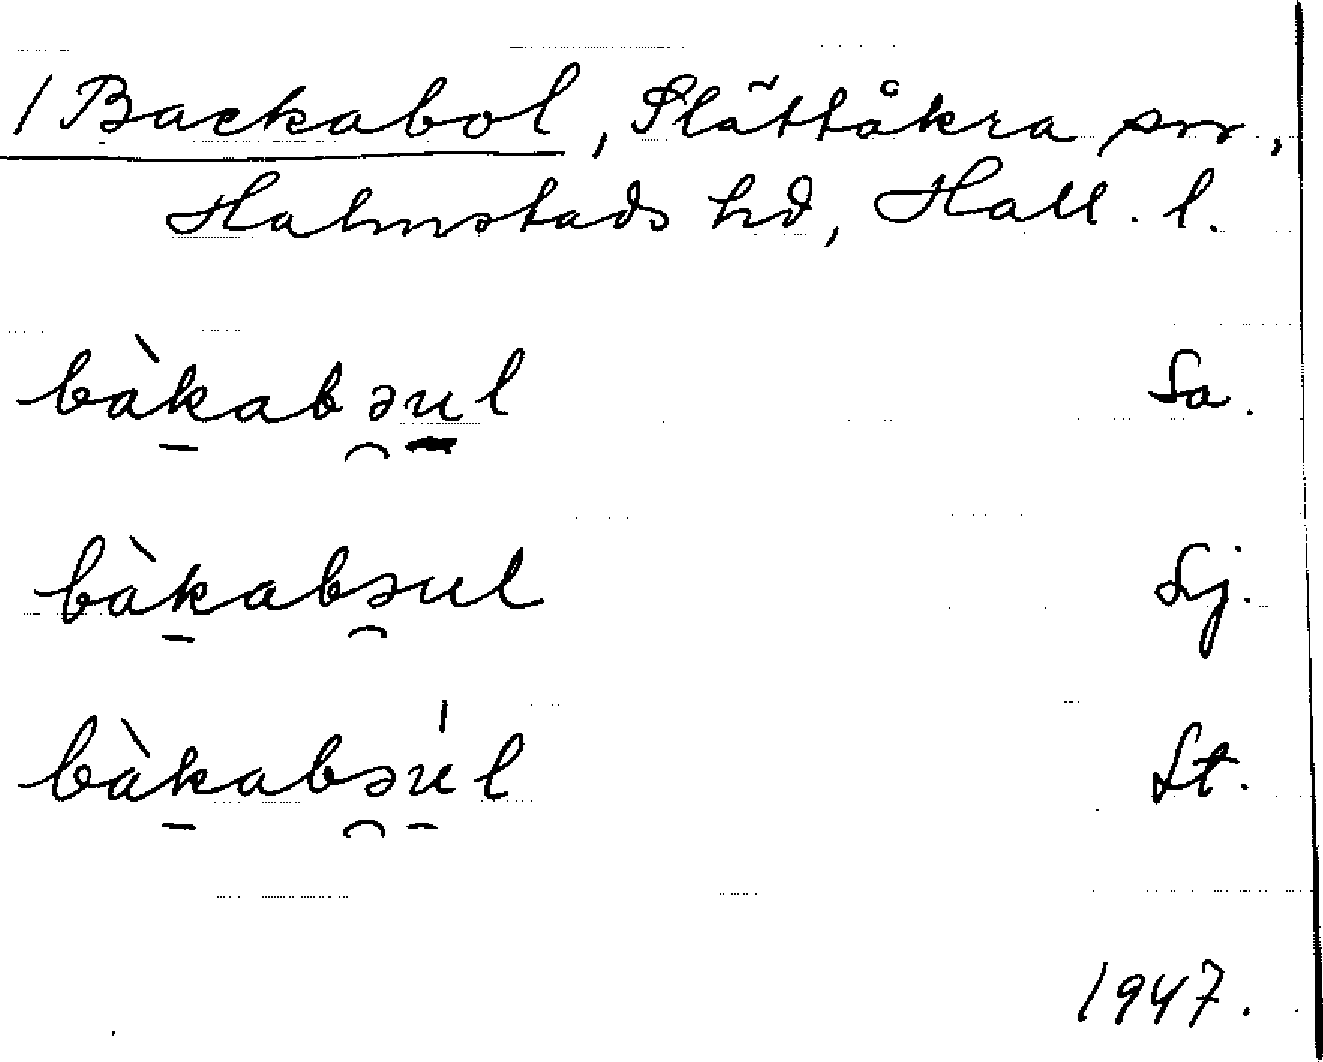 / Backabol, Slättåkra snr,
Halmstads hd, Hall. l.
bàk̲abə̯u̲l Sa.
bàk̲abə̯ul Lj.
bàk̲abə̯ú̲l St.
1947.